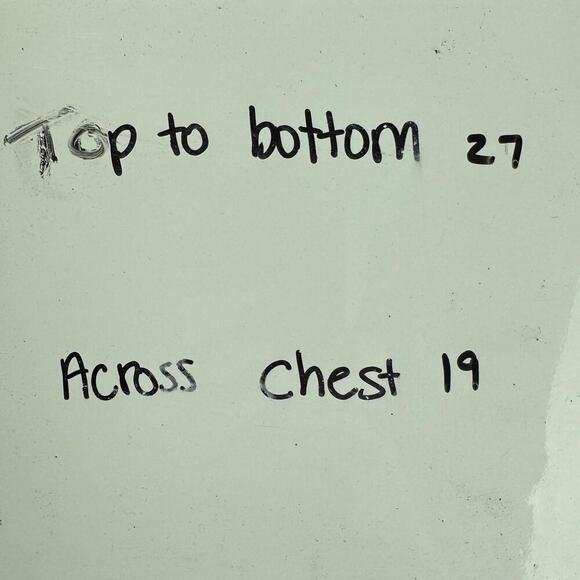 Top to bottom 27
Across Chest 19